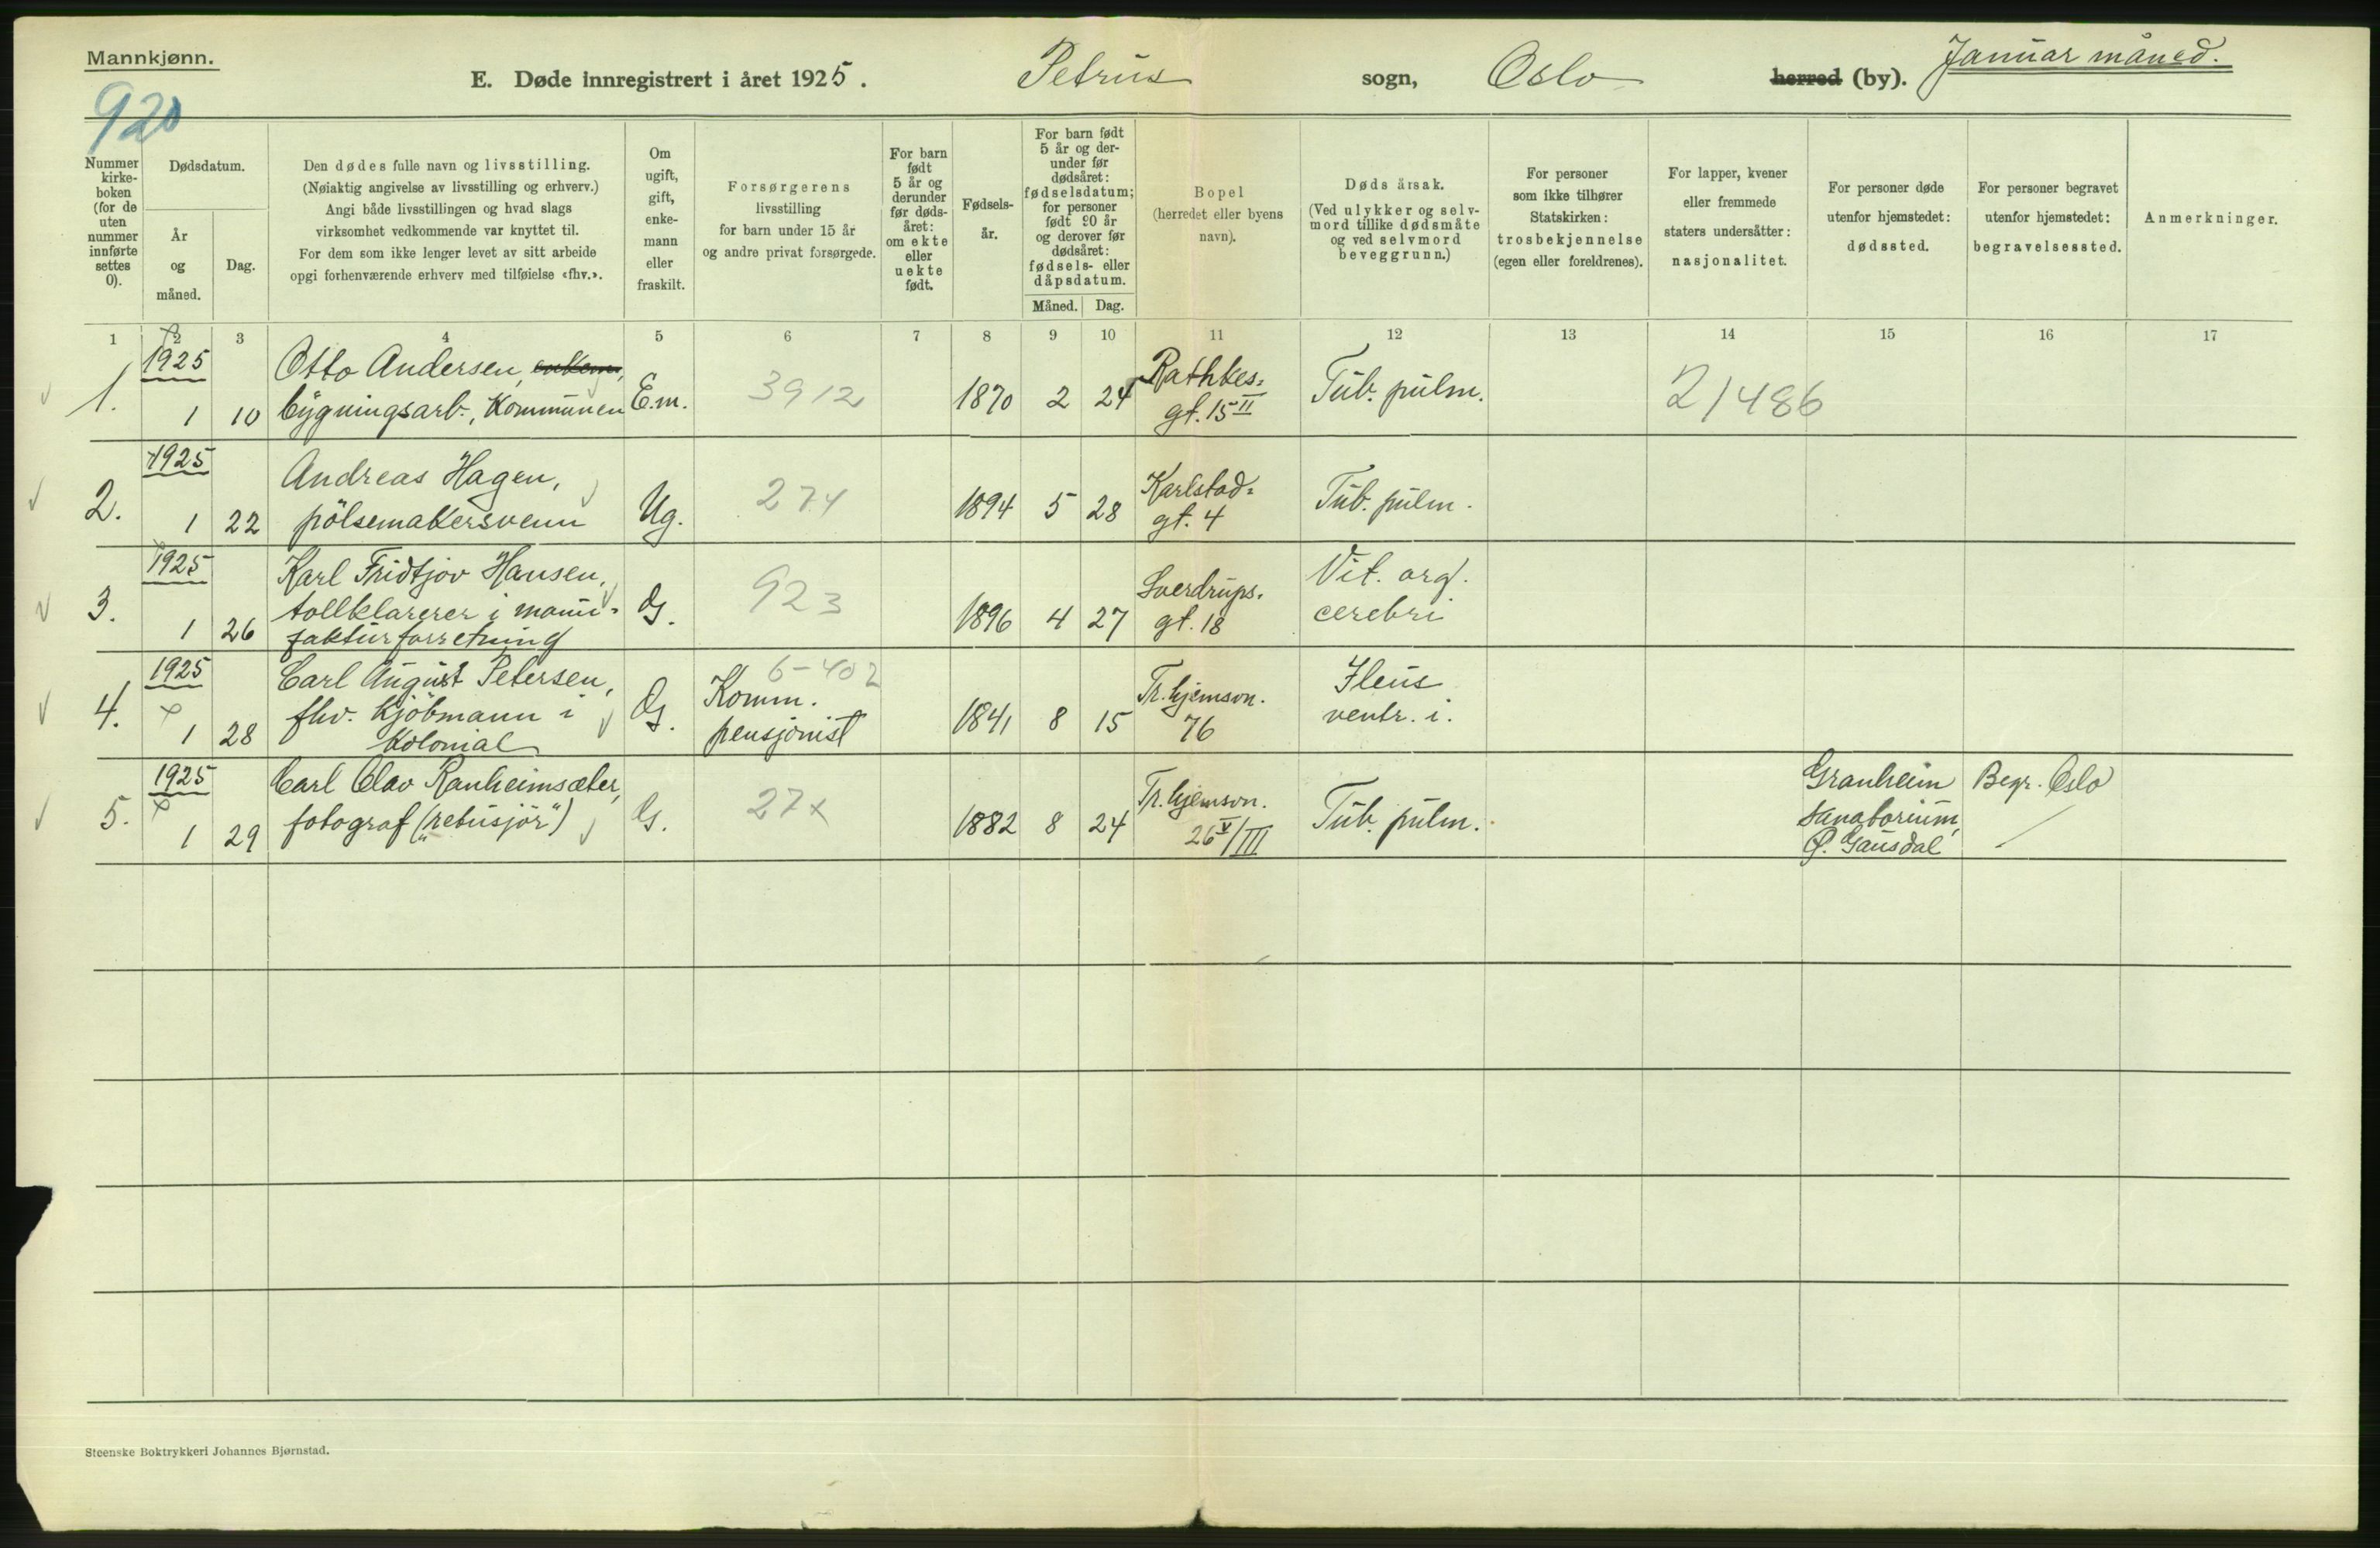 Mannkjønn.
920
E. Døde innregistrert i året 1925. Petrus sogn, Oslo herred (by). Januar måned.
Nummer kirke-boken (for de uten nummer innførte settes 0).
Dødsdatum.
År og måned.
Dag.
Den dødes fulle navn og livsstilling.
(Nøiaktig angivelse av livsstilling og erhverv.)
Angi både livsstillingen og hvad slags
virksomhet vedkommende var knyttet til.
For dem som ikke lenger levet av sitt arbeide
opgi forhenværende erhverv med tilføielse «fhv.».
Om ugift, gift, enke-mann eller fraskilt.
Forsørgerens
livsstilling
for barn under 15 år
og andre privat forsørgede.
For barn født 5 år og derunder før døds-året: om ekte eller uekte født.
Fødsels-år.
For barn født 5 år og der-under før dødsåret: fødselsdatum; for personer født 90 år og derover før dødsåret: fødsels- eller dåpsdatum.
Måned. Dag.
Bopel
(herredet eller byens
navn).
Døds årsak.
(Ved ulykker og selv-
mord tillike dødsmåte
og ved selvmord
beveggrunn.)
For personer
som ikke tilhører
Statskirken:
trosbekjennelse
(egen eller foreldrenes).
For lapper, kvener
eller fremmede
staters undersåtter:
nasjonalitet.
For personer døde
utenfor hjemstedet:
dødssted.
For personer begravet
utenfor hjemstedet:
begravelsessted.
Anmerkninger.
1 2 3 4 5 6 7 8 9 10 11 12 13 14 15 16 17
1925 Otto Andersen, Rathkes=
1. 1 10 bygningsarb., Kommunen E.m. 3912 1870 2 24 gt. 15 II Tub. pulm. 21486
1925 Andreas Hagen, Karlstad=
2. 1 22 pölsemakersvenn Ug. 274 1894 5 28 gt. 4 Tub. pulm.
1925 Karl Fridtjov Hansen, Sverdrups. Vit. org.
3. tollklarerer i manu= G. 923 cerebri
1 26 fakturforretning 1896 4 27 gt. 18
1925 Carl August Petersen, 6-402 Tr.hjemsvn. Ileus
4. fhv. kjöbmann i G. Komm. ventr. i.
1 28 Kolonial pensjonist 1841 8 15 76
1925 Carl Olav Ranheimsæter, Tr.hjemsvn. Granheim Begr. Oslo
5. fotograf ("retusjör") G. 27x Tub. pulm. sanatorium,
1 29 1882 8 24 26 V/III Ø. Gausdal
Steenske Boktrykkeri Johannes Bjørnstad.